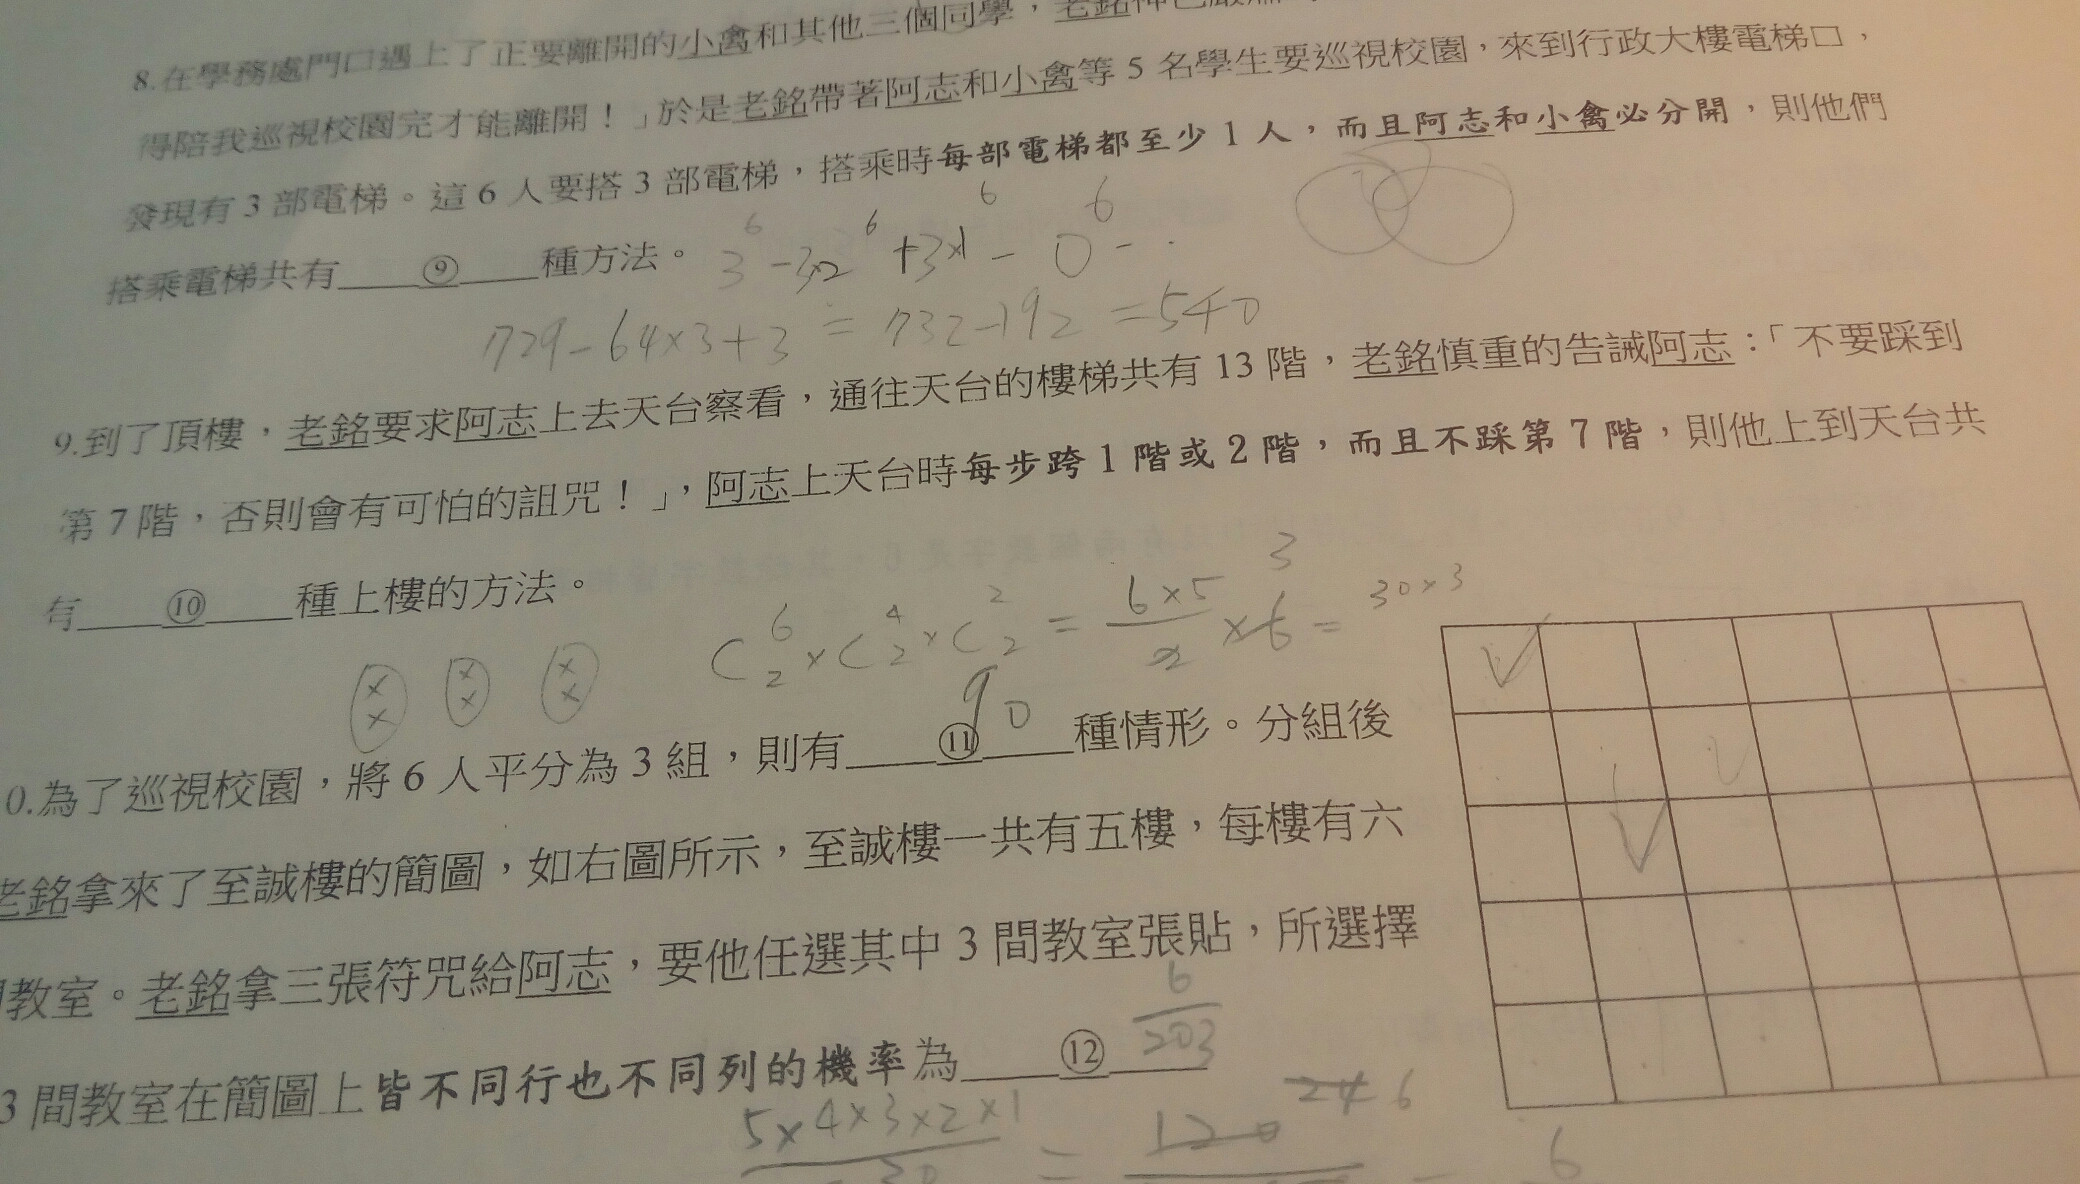 8.在學務處門口遇上了正要離開的小禽和其他三個同學，老銘神色嚴肅
得陪我巡視校園完才能離開！」於是老銘帶著阿志和小禽等 5 名學生要巡視校園，來到行政大樓電梯口，
發現有 3 部電梯。這 6 人要搭 3 部電梯，搭乘時每部電梯都至少 1 人，而且阿志和小禽必分開，則他們
搭乘電梯共有 ⑨ 種方法。 3^6 -3×2^6 +3×1^6 - 0^6 -
729-64×3+3 = 732-192 =540
9.到了頂樓，老銘要求阿志上去天台察看，通往天台的樓梯共有 13 階，老銘慎重的告誡阿志：「不要踩到
第 7 階，否則會有可怕的詛咒！」，阿志上天台時每步跨 1 階或 2 階，而且不踩第 7 階，則他上到天台共
有 ⑩ 種上樓的方法。
C^6_2×C^4_2×C^2_2 = 6×5/2 ×6 = 30×3
3
90
0.為了巡視校園，將 6 人平分為 3 組，則有 ⑪ 種情形。分組後
老銘拿來了至誠樓的簡圖，如右圖所示，至誠樓一共有五樓，每樓有六
間教室。老銘拿三張符咒給阿志，要他任選其中 3 間教室張貼，所選擇
3 間教室在簡圖上皆不同行也不同列的機率為 ⑫ 6/203
5×4×3×2×1 = 120
24 6
6